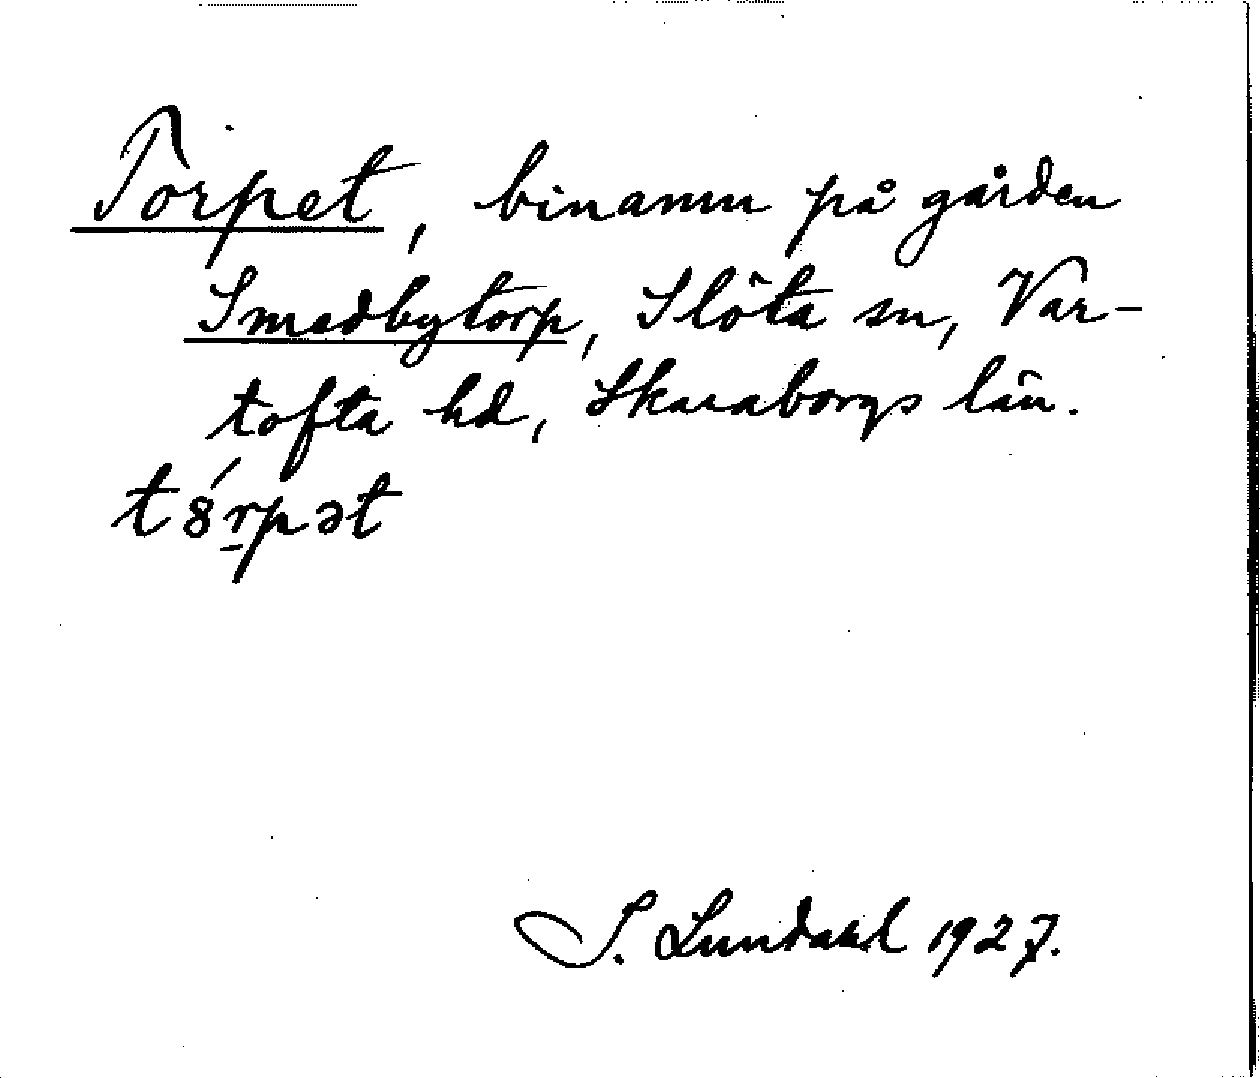 Torpet, binamn på gården
Smedbytorp, Slöta sn, Var-
tofta hd, Skaraborgs län.
t8́r̠pət
I. Lundahl 1927.